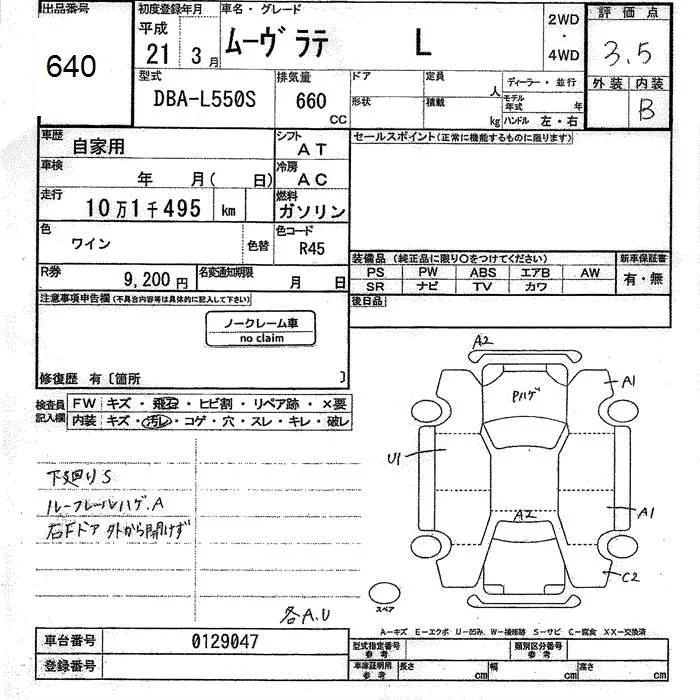 出品番号
640
初度登録年月
平成
21 3 月
車名・グレード
ムーヴ ラテ L
2WD
・
4WD
評価点
3.5
外装 内装
B
型式
DBA-L550S
排気量
660
CC
ドア
定員
人
形状
積載
kg
ディーラー・並行
モデル
年式 年
ハンドル 左・右
車歴
自家用
シフト
AT
車検
年 月( 日)
冷房
AC
走行
10万1千495 km
燃料
ガソリン
色
ワイン
色替
色コード
R45
R券
9,200円
名変通知期限
月 日
セールスポイント(正常に機能するものに限ります)
装備品 (純正品に限り○をつけてください)
PS PW ABS エアB AW
SR ナビ TV カワ
新車保証書
有・無
後日品
注意事項申告欄(不具合内容等は具体的に記入して下さい)
ノークレーム車
no claim
修復歴 有〔箇所 〕
検査員
記入欄
FW キズ・飛石・ヒビ割・リペア跡・×要
内装 キズ・汚レ・コゲ・穴・スレ・キレ・破レ
下廻りS
ルーフレールハゲ.A
右Fドア 外から開けず
各A.U
A2
Pハゲ
A1
U1
A2
A1
C2
スペア
A―キズ E―エクボ U―凹み W―補修跡 S―サビ C―腐食 XX―交換済
車台番号
0129047
登録番号
型式指定番号
参考
類別区分番号
参考
車庫証明用
参考
長さ cm 幅 cm 高さ cm